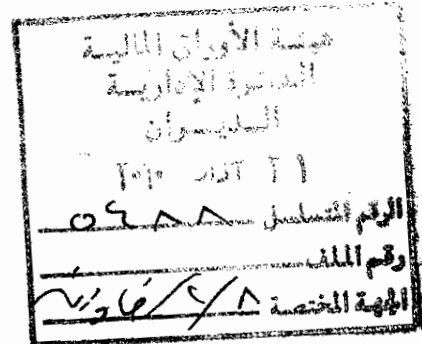 هيئة الأوراق المالية
الدائرة الإدارية
الديوان
آذار ٢٠١٠
الرقم المتسلسل ٥٤٨٨
رقم الملف
الجهة المختصة